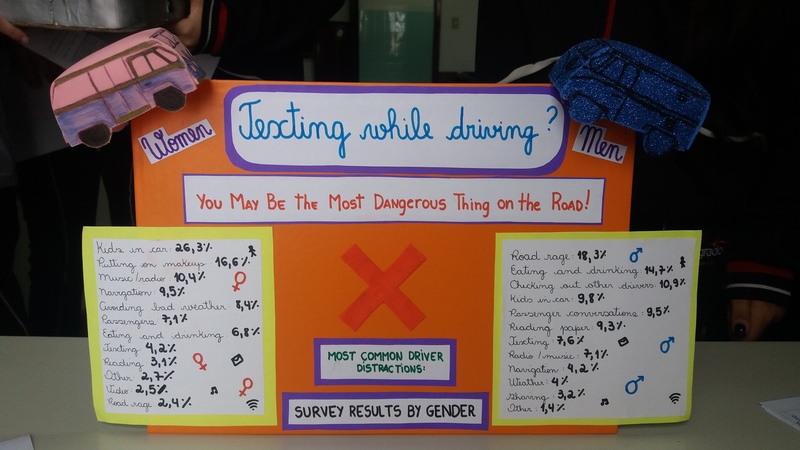 Texting while driving?
Women
Men
YOU MAY BE THE MOST DANGEROUS THING ON THE ROAD!
Kids in car: 26,3%
Putting on makeup: 16,6%
Music/radio 10,4%
Navigation 9,5%
Avoiding bad weather: 8,4%
Passengers 7,1%
Eating and drinking: 6,8%
Texting 4,2%
Reading 3,1%
Other 2,7%
Video 2,5%
Road rage: 2,4%
MOST COMMON DRIVER
DISTRACTIONS:
SURVEY RESULTS BY GENDER
Road rage: 18,3%
Eating and drinking: 14,7%
Checking out other drivers: 10,9%
Kids in car: 9,8%
Passenger conversations: 9,5%
Reading paper: 9,3%
Texting 7,6%
Radio/music: 7,1%
Navigation: 4,2%
Weather: 4%
Sharing: 3,2%
Other: 1,4%